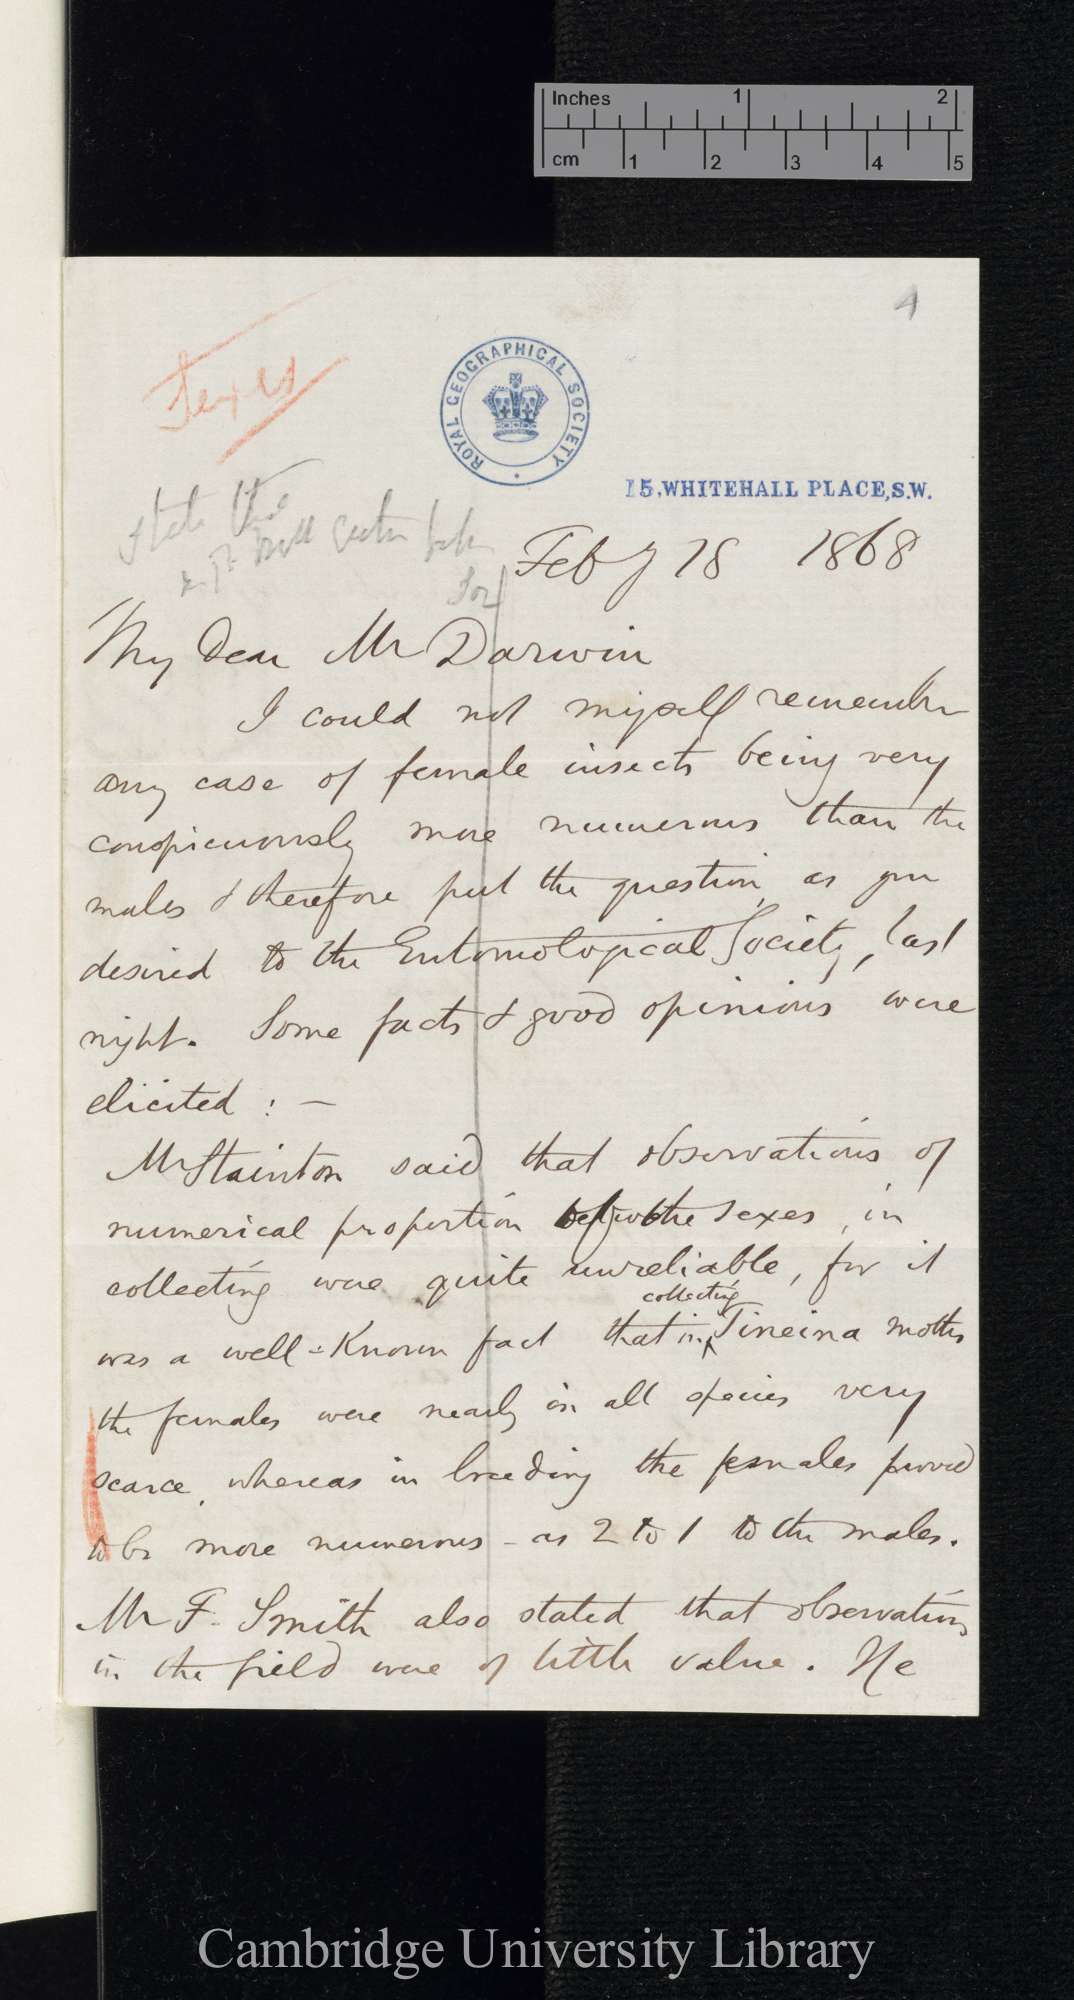 Inches 1 2
cm 1 2 3 4 5
4
Sexes
ROYAL GEOGRAPHICAL SOCIETY
15, WHITEHALL PLACE, S.W.
state this
Feby 18 1868
My Dear Mr Darwin
I could not myself remember
any case of female insects being very
conspicuously more numerous than the
males & therefore put the question, as you
desired to the Entomological Society, last
night. Some facts & good opinions were
elicited : —
Mr Stainton said that observations of
numerical proportion the sexes, in
collecting were quite unreliable, for it
collecting
was a well-known fact that in Tineina moths
the females were nearly in all species very
scarce, whereas in breeding the females proved
to be more numerous – as 2 to 1 to the males.
Mr F. Smith also stated that observations
in the field were of little value. He
Cambridge University Library